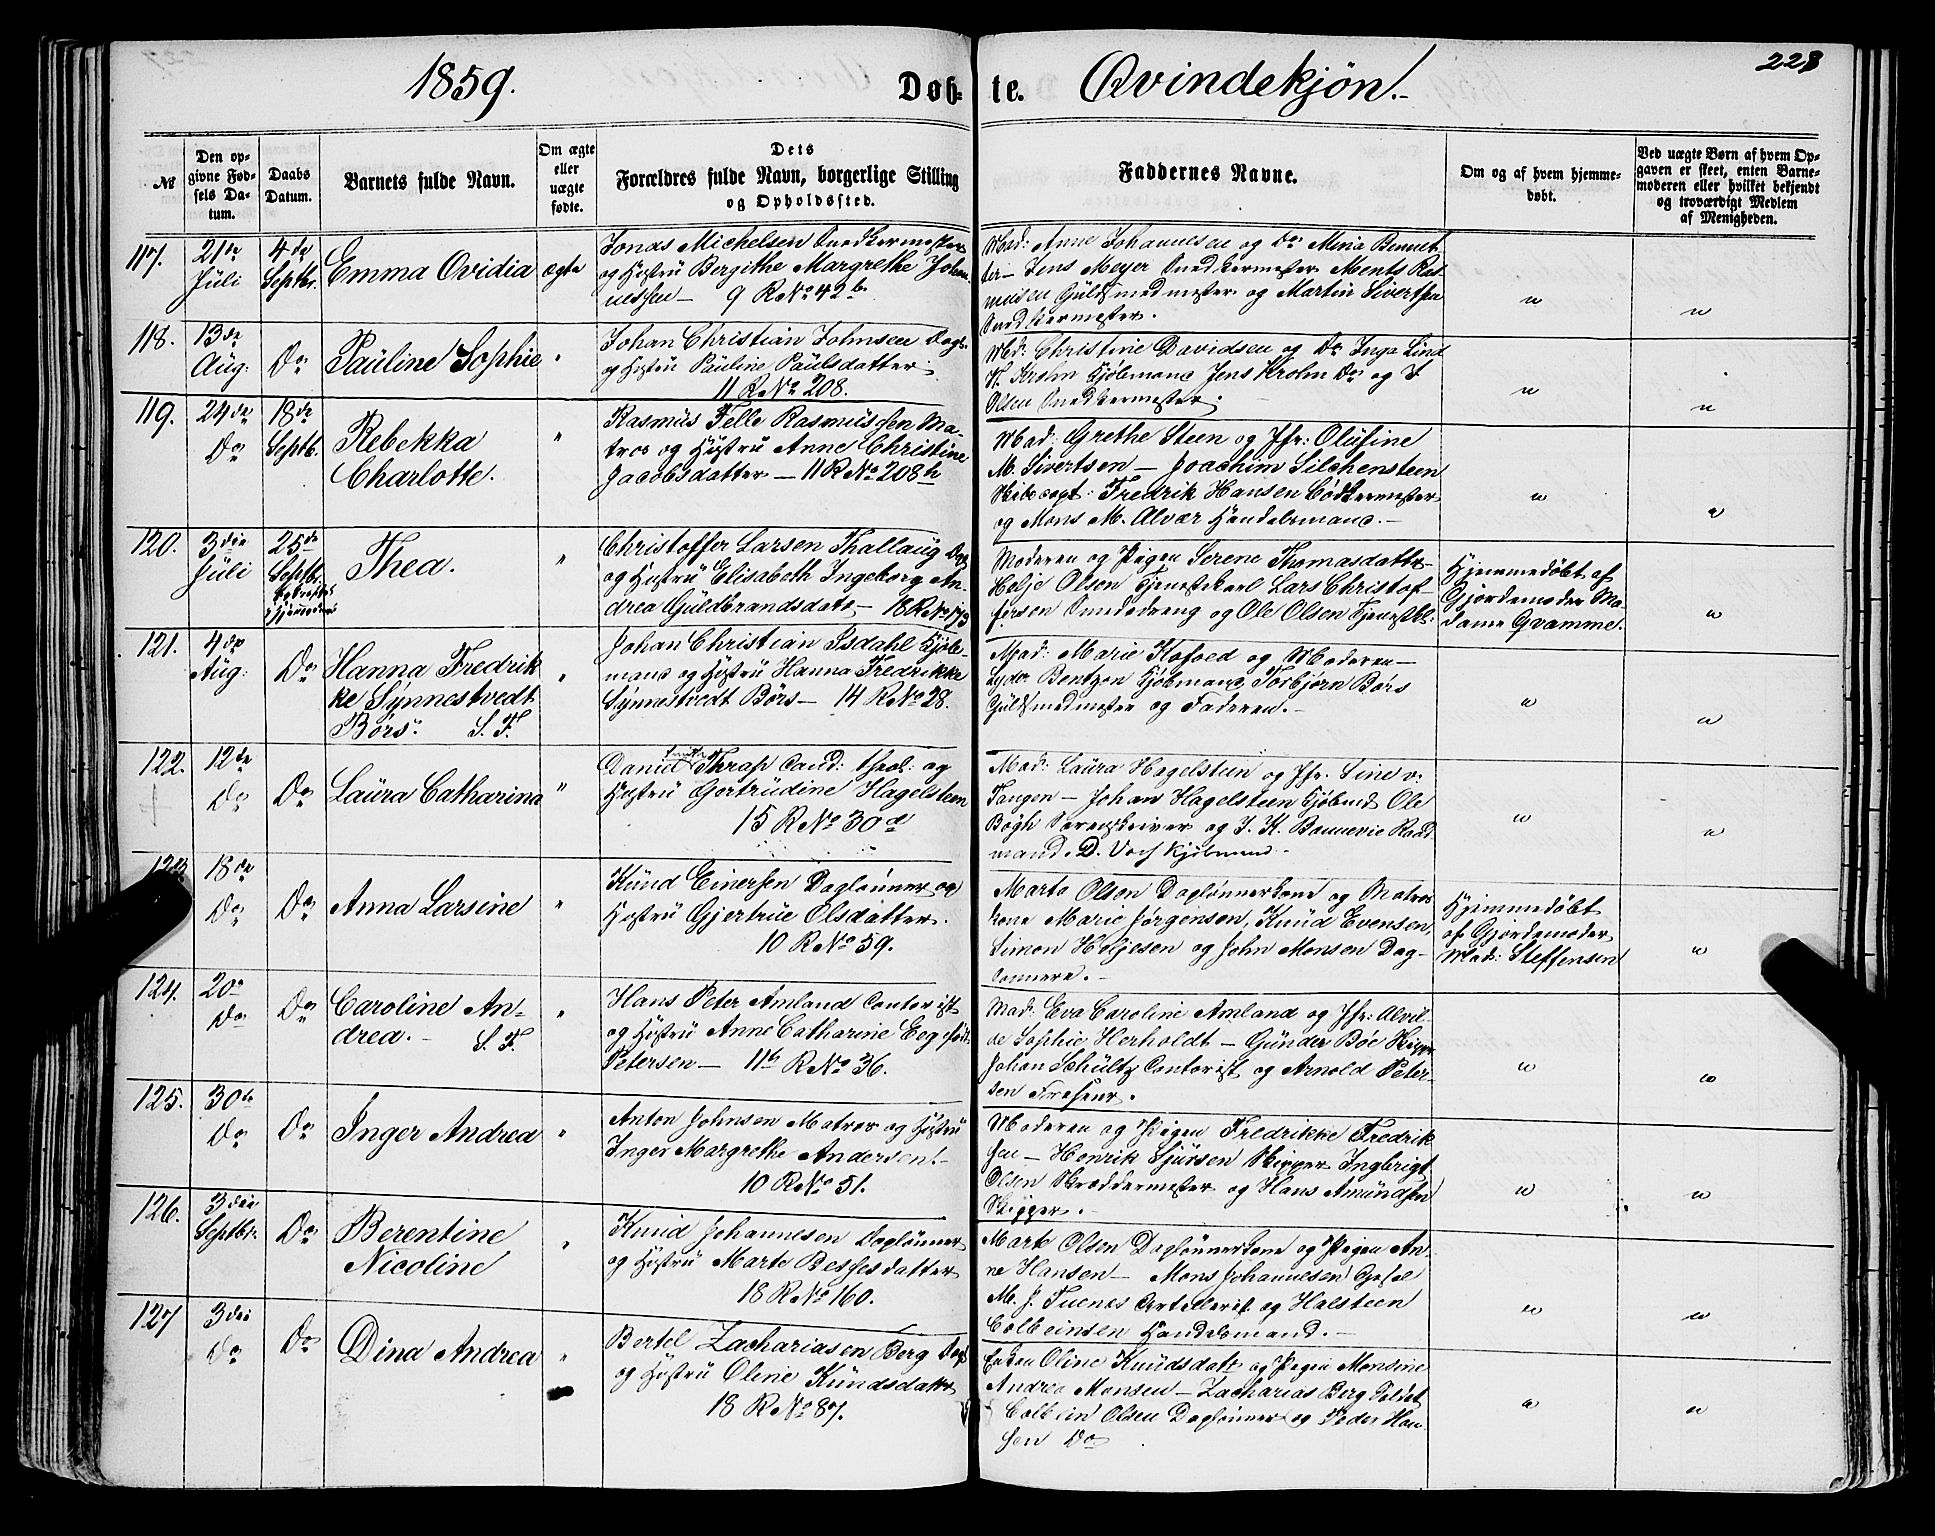 1859.
Døb-
te.
Qvindekjøn.
228
No
Den op-
givne Fød-
sels Da-
tum.
Daabs
Datum.
Barnets fulde Navn.
Om ægte
eller
uægte
fødte.
Dets
Forældres fulde Navn, borgerlige Stilling
og Opholdssted.
Faddernes Navne.
Om og af hvem hjemme-
døbt.
Ved uægte Børn af hvem Op-
gaven er skeet, enten Barne-
moderen eller hvilket bekjendt
og troværdigt Medlem
af Menigheden.
117.
21de
Juli
4de
Septbr.
Emma Ovidia
ægte
Jonas Michelsen Snedkermester
og Hustru Bergithe Margrethe Johan-
nessen — 9 R No 42b.
Mad: Anne Johannesen og Do Maria Bennet-
ter — Jens Meyer Snedkermester Ments Ras-
musen Guldsmedmester og Martin Siverthsen
Snedkermester.
"
"
118.
13de
Aug:
Do
Pauline Sophie
"
Johan Christian Johnsen Dagl.
og Hustru Pauline Paulsdatter
11 R No 208.
Md: Christine Davidsen og Do Inga Lind
Krohn Kjøbmand Jens Krohn Do og J.
Olsen Snedkermester.
"
"
119.
24de
Do
18de
Septb.
Rebekka
Charlotte.
"
Rasmus Felle Rasmussen Ma-
tros og Hustru Anne Christine
Jacobsdatter — 11 R No 208h
Mad: Grethe Steen og Jfr: Olufine
M. Sivertsen — Joachim Silchensteen
Skibscapt: Fredrik Hansen Bødkermester
og Mons M. Alvær Handelsmand. —
"
"
120.
3die
Juli
25de
Septbr.
Thea.
"
Christoffer Larsen Thallaug Dagl
og Hustru Elisabeth Ingeborg An-
drea Guldbrandsdatr — 18 R No 173
Moderen og Pigen Serene Thomasdatter
Helje Olsen Tjenestekarl Lars Christof-
fersen Snededreng og Ole Olsen Tjenestk:
Hjemmedøbt af
Gjordemoder Ma-
dame Gramme.
"
121.
4de
Aug:
Do
Hanna Fredrik-
ke Synnestvedt
Børs. S. F.
"
Johan Christian Isdahl Kjøb-
mand og Hustru Hanna Fredrikke
Synnestvedt Børs — 14 R No 28.
Mad: Marie Kofoed og Moderen —
Lyder Bentzon Kjøbmand, Torbjørn Børs
Guldsmedmester og Faderen. —
"
"
122.
12de
Do
Do
Laura Catharina
"
Daniel Smith Thrap Cand: theol: og
Hustru Gertrudine Hagelsteen
15 R No 30d
Mad: Laura Hagelsteen og Jfr. Sine v:
Tangen — Johan Hagelsteen Kjøbmd Ole
Bøgh Sorenskriver og J. K. Bennevie Raad-
mand. D. Voss Kjøbmand.
"
"
123
18de
Do
Do
Anna Larsine
"
Knud Einersen Daglønner og
Hustru Gjertrue Olsdatter.
10 R No 59.
Marta Olsen Dagløonnerkone og Matros-
kone Marie Jørgensen, Knud Evensen,
Simon Holjesen og John Monsen Dag-
lønnere.
Hjemmedøbt
af Gjordemoder
Mad: Steffensen
"
124.
20de
Do
Do
Caroline An-
drea. — S. F.
"
Hans Peter Amland Contorist
og Hustru Anne Catharine Eeg født
Petersen — 11b R No 36.
Mad: Eva Caroline Amland og Jfr: Alvil-
de Sophie Herholdt — Gunder Bøe Skipper
Johan Schultz Contorist og Arnold Peter-
sen Friseur.
"
"
125.
30te
Do
Do
Inger Andrea
"
Anton Johnsen Matros og Hustru
Inger Margrethe Andersen. —
10 R No 51.
Moderen og Pigen Fredrikke Fredrik-
sen — Henrik Sjursen Skipper Inglerigt
Olsen Skræddermester og Hans Amundsen
Skipper.
"
"
126.
3die
Septbr:
Do
Berentine
Nicoline
"
Knud Johannesen Dagløonner
og Hustru Marte Bessesdatter
18 R No 160.
Marte Olsen Dagløonnerkone og Pigen An-
ne Hansen — Mons Johannesen Gesel
M. J. Tuenes Artillerist og Halsteen
Colbeinsen Handelsmand. —
"
"
127
3die
Do
Do
Dina Andrea
"
Bertel Zachariasen Berg Dagl
og Hustru Oline Knudsdatr
18 R No 87.
Enken Oline Knudsdatr og Pigen Monsine
Andrea Monsen — Zacharias Berg Soldat
Colbein Olsen Dagløonner og Peder Han-
sen Do
"
"